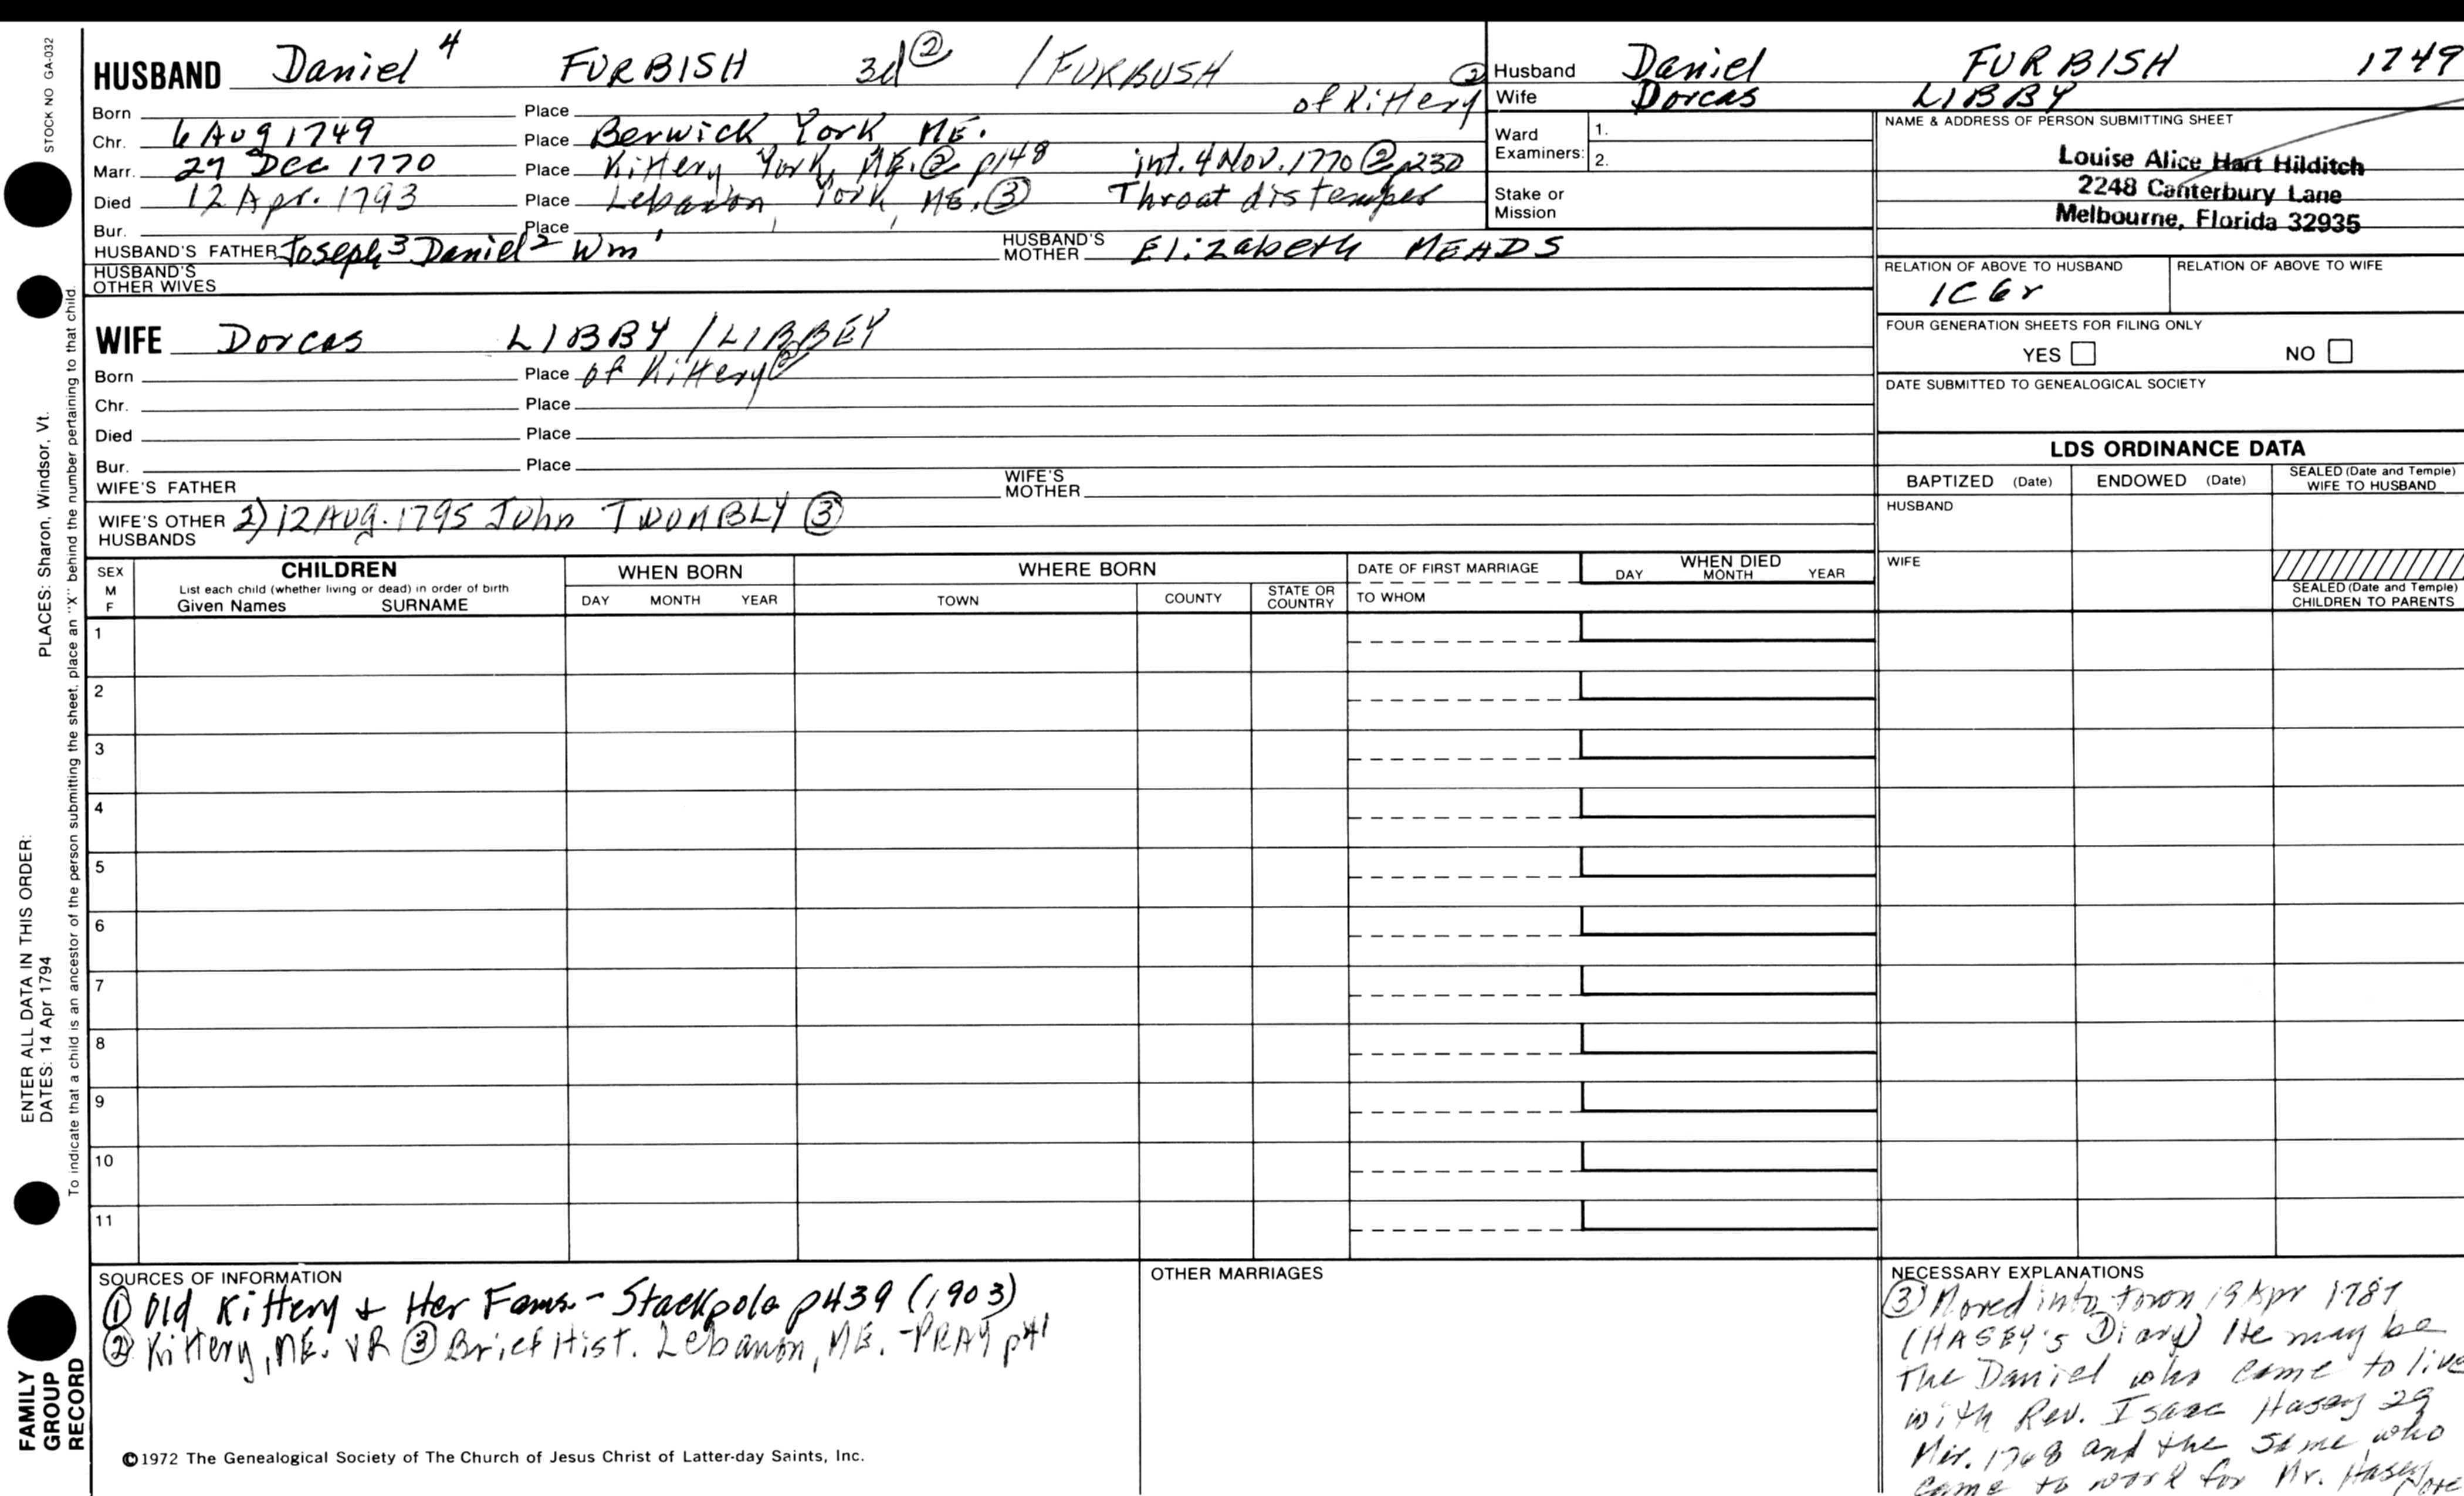 STOCK NO GA-032
HUSBAND Daniel 4 FURBISH 3d ② / FURBUSH
② of Kittery
Born Place
Chr. 6 Aug 1749 Place Berwick York ME.
Marr. 27 Dec 1770 Place Kittery York, ME. ② p148 int. 4 Nov. 1770 ② p230
Died 12 Apr. 1793 Place Lebanon York, ME. ③ Throat distemper
Bur. Place
HUSBAND'S FATHER Joseph 3 Daniel 2 Wm 1 HUSBAND'S MOTHER Elizabeth MEADS
HUSBAND'S OTHER WIVES
WIFE Dorcas LIBBY / LIBBEY
Born Place of Kittery ②
Chr. Place
Died Place
Bur. Place
WIFE'S FATHER WIFE'S MOTHER
WIFE'S OTHER HUSBANDS 2) 12 Aug. 1795 John TWOMBLY ③
Husband Daniel FURBISH 1749
Wife Dorcas LIBBY
Ward Examiners: 1.
2.
Stake or Mission
NAME & ADDRESS OF PERSON SUBMITTING SHEET
Louise Alice Hart Hilditch
2248 Canterbury Lane
Melbourne, Florida 32935
RELATION OF ABOVE TO HUSBAND RELATION OF ABOVE TO WIFE
1C6r
FOUR GENERATION SHEETS FOR FILING ONLY
YES NO
DATE SUBMITTED TO GENEALOGICAL SOCIETY
LDS ORDINANCE DATA
BAPTIZED (Date) ENDOWED (Date) SEALED (Date and Temple) WIFE TO HUSBAND
HUSBAND
WIFE
SEALED (Date and Temple) CHILDREN TO PARENTS
SEX M F
CHILDREN
List each child (whether living or dead) in order of birth
Given Names SURNAME
WHEN BORN
DAY MONTH YEAR
WHERE BORN
TOWN COUNTY STATE OR COUNTRY
DATE OF FIRST MARRIAGE
TO WHOM
WHEN DIED
DAY MONTH YEAR
1
2
3
4
5
6
7
8
9
10
11
SOURCES OF INFORMATION
① Old Kittery & Her Fams. - Stackpole p439 (1903)
② Kittery, ME. VR ③ Brief Hist. Lebanon, ME. - PRAY p41
©1972 The Genealogical Society of The Church of Jesus Christ of Latter-day Saints, Inc.
OTHER MARRIAGES
NECESSARY EXPLANATIONS
③ Moved into town 19 Apr 1787
(HASEY'S Diary) He may be
The Daniel who came to live
with Rev. Isaac Hasey 29
1768 and the same who
came to work for Mr. Hasey
PLACES: Sharon, Windsor, Vt.
ENTER ALL DATA IN THIS ORDER:
DATES: 14 Apr 1794
To indicate that a child is an ancestor of the person submitting the sheet, place an "X" behind the number pertaining to that child.
FAMILY
GROUP
RECORD